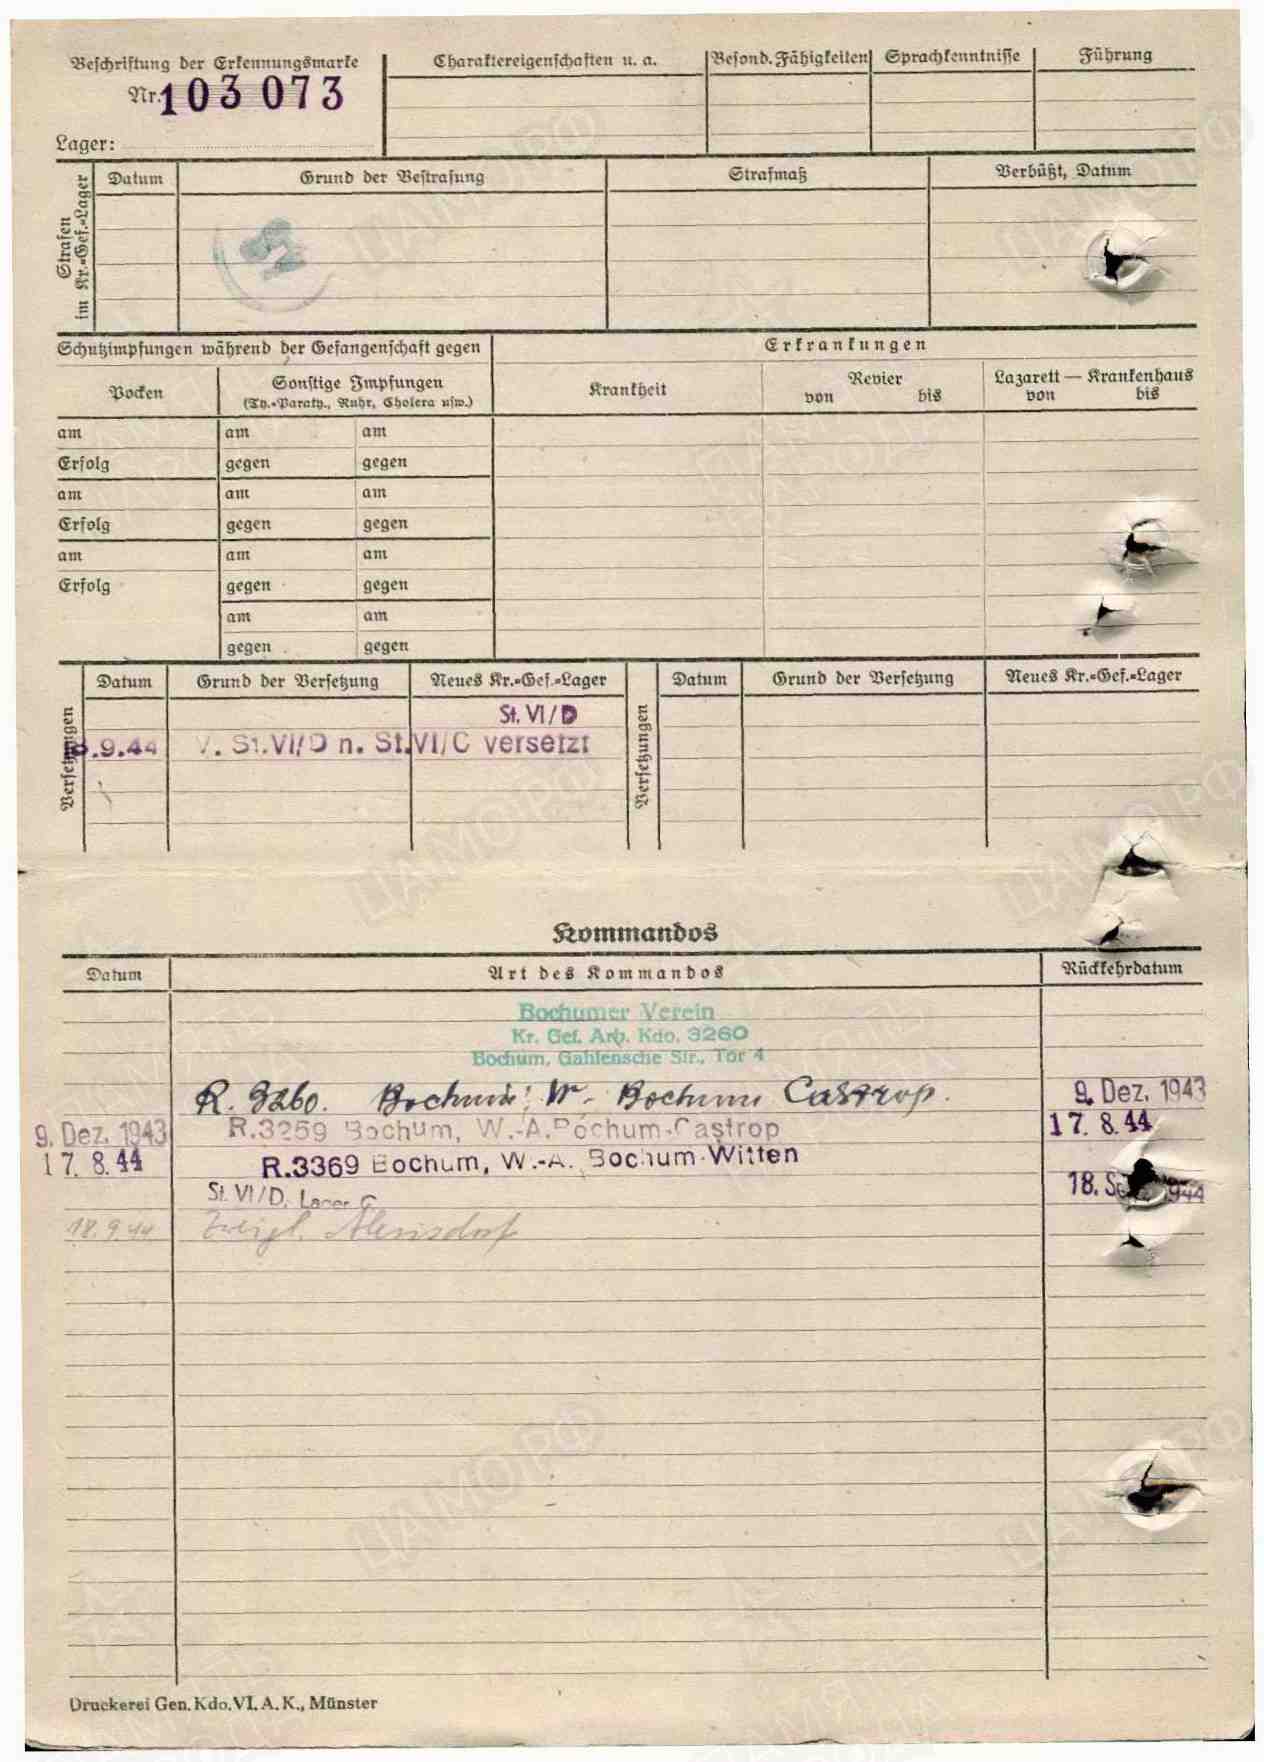 Beschriftung der Erkennungsmarke
Nr. 103 073
Lager:
Charaktereigenschaften u. a.
Besond. Fähigkeiten
Sprachkenntnisse
Führung
Strafen im Kr.-Gef.-Lager
Datum
Grund der Bestrafung
Strafmaß
Verbüßt, Datum
Schutzimpfungen während der Gefangenschaft gegen
Erkrankungen
Pocken
Sonstige Impfungen
(Ty.-Paraty., Ruhr, Cholera usw.)
Krankheit
Revier
von bis
Lazarett — Krankenhaus
von bis
am am am
Erfolg gegen gegen
am am am
Erfolg gegen gegen
am am am
Erfolg gegen gegen
am am
gegen gegen
Versetzungen
Datum Grund der Versetzung Neues Kr.-Gef.-Lager
Versetzungen
Datum Grund der Versetzung Neues Kr.-Gef.-Lager
St. VI/D
.9.44 V. St.VI/D n. St.VI/C versetzt
Kommandos
Datum Art des Kommandos Rückkehrdatum
Bochumer Verein
Kr. Gef. Arb. Kdo. 3260
Bochum, Gahlensche Str., Tor 4
R. 3260. Bochum W- Bochum Castrop. 9. Dez. 1943
9. Dez. 1943 R.3259 Bochum, W.-A. Bochum-Castrop 17. 8. 44
17. 8. 44 R.3369 Bochum, W.-A. Bochum-Witten 18. 1944
St. VI/D, Lager
18.9.44
Druckerei Gen. Kdo. VI. A. K., Münster
ЦАМО РФ